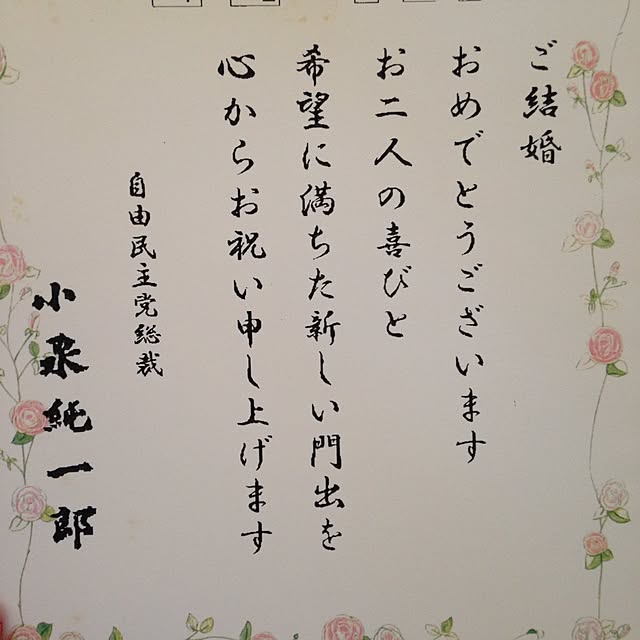 ご結婚
おめでとうございます
お二人の喜びと
希望に満ちた新しい門出を
心からお祝い申し上げます
自由民主党総裁
小泉純一郎